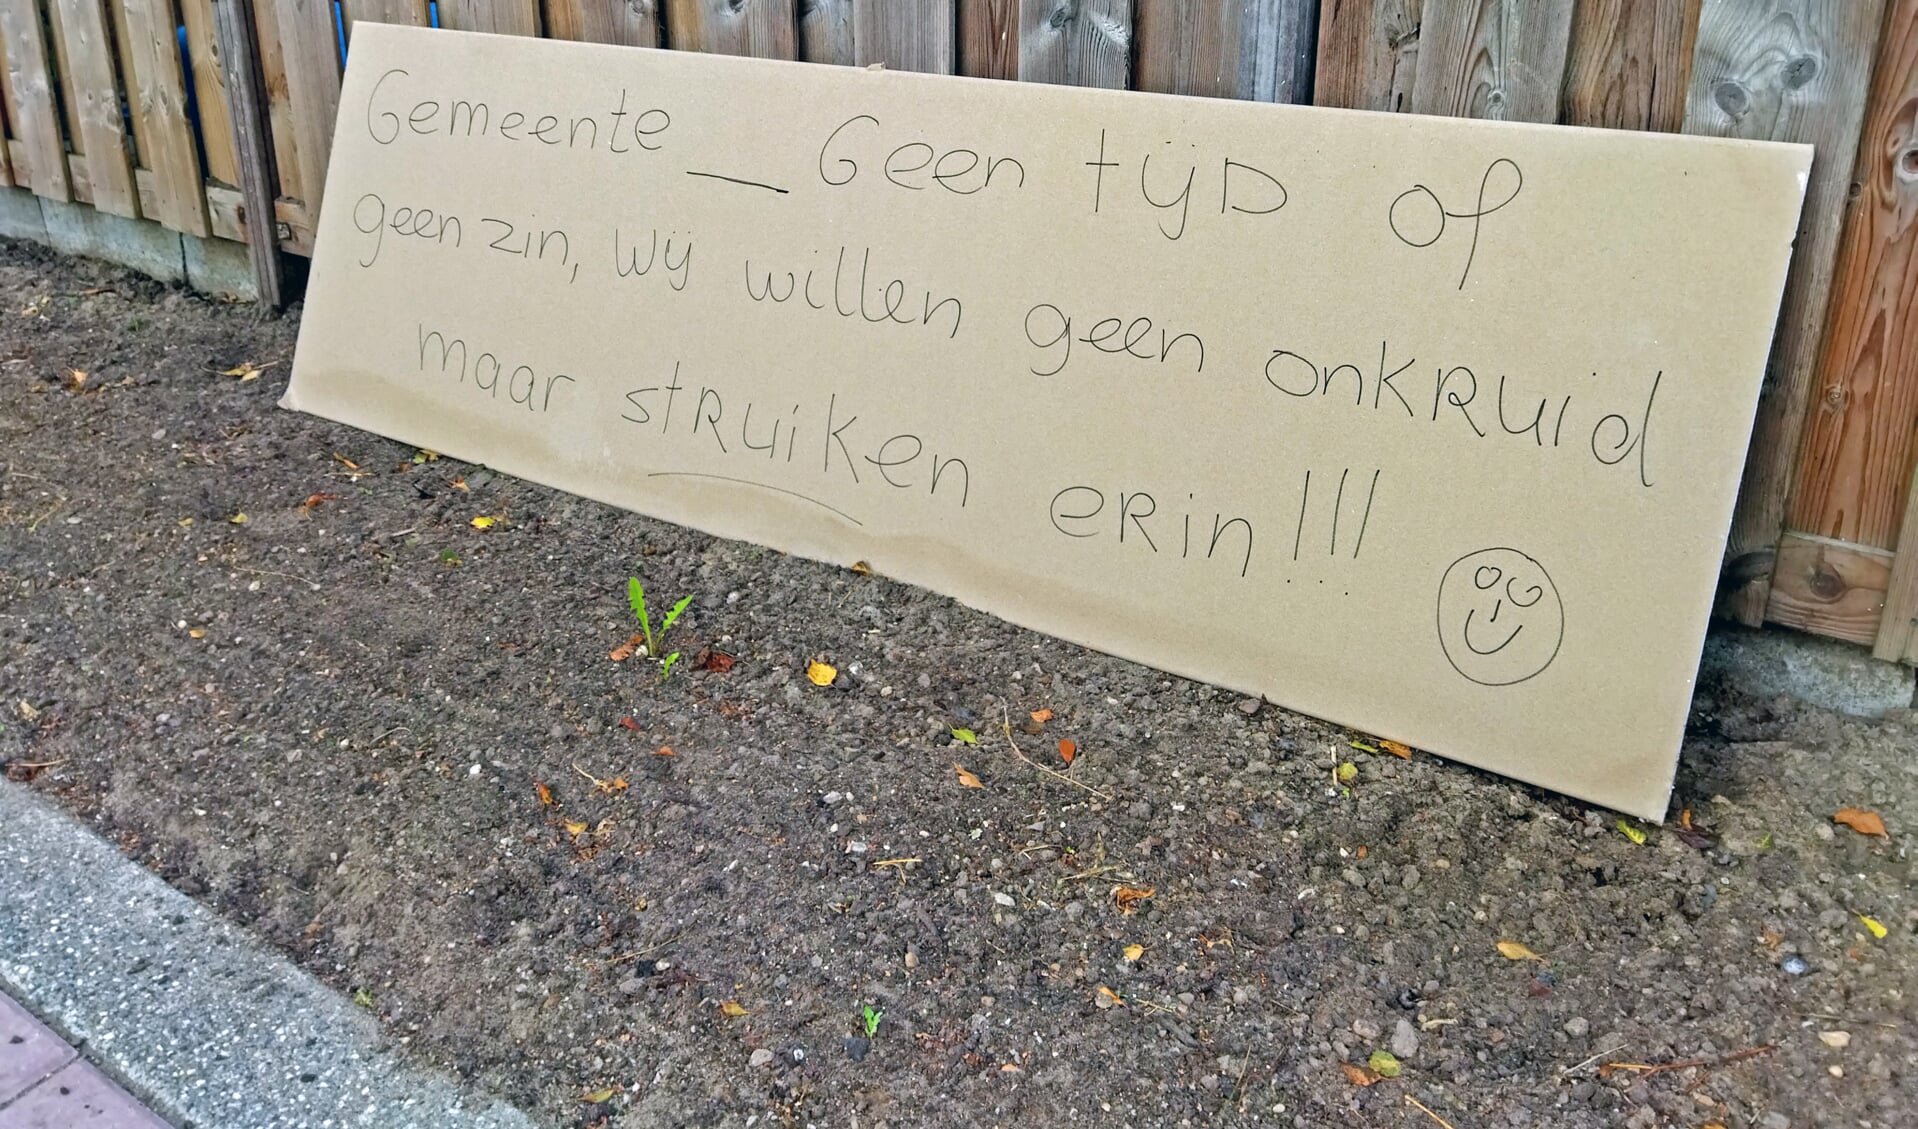 Gemeente _ Geen tijD of
geen zin, wij willen geen onKRuid
maar stRuiKen eRin!!!